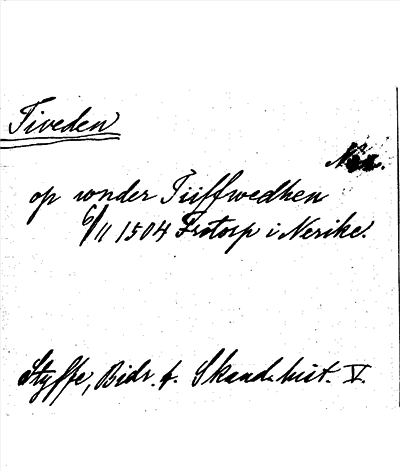 Tiveden
Nrk.
op vnder Tiiffwedhen
6/11 1504 Frotorp i Nerike.
Styffe, Bidr. t. Skand. hist. V.